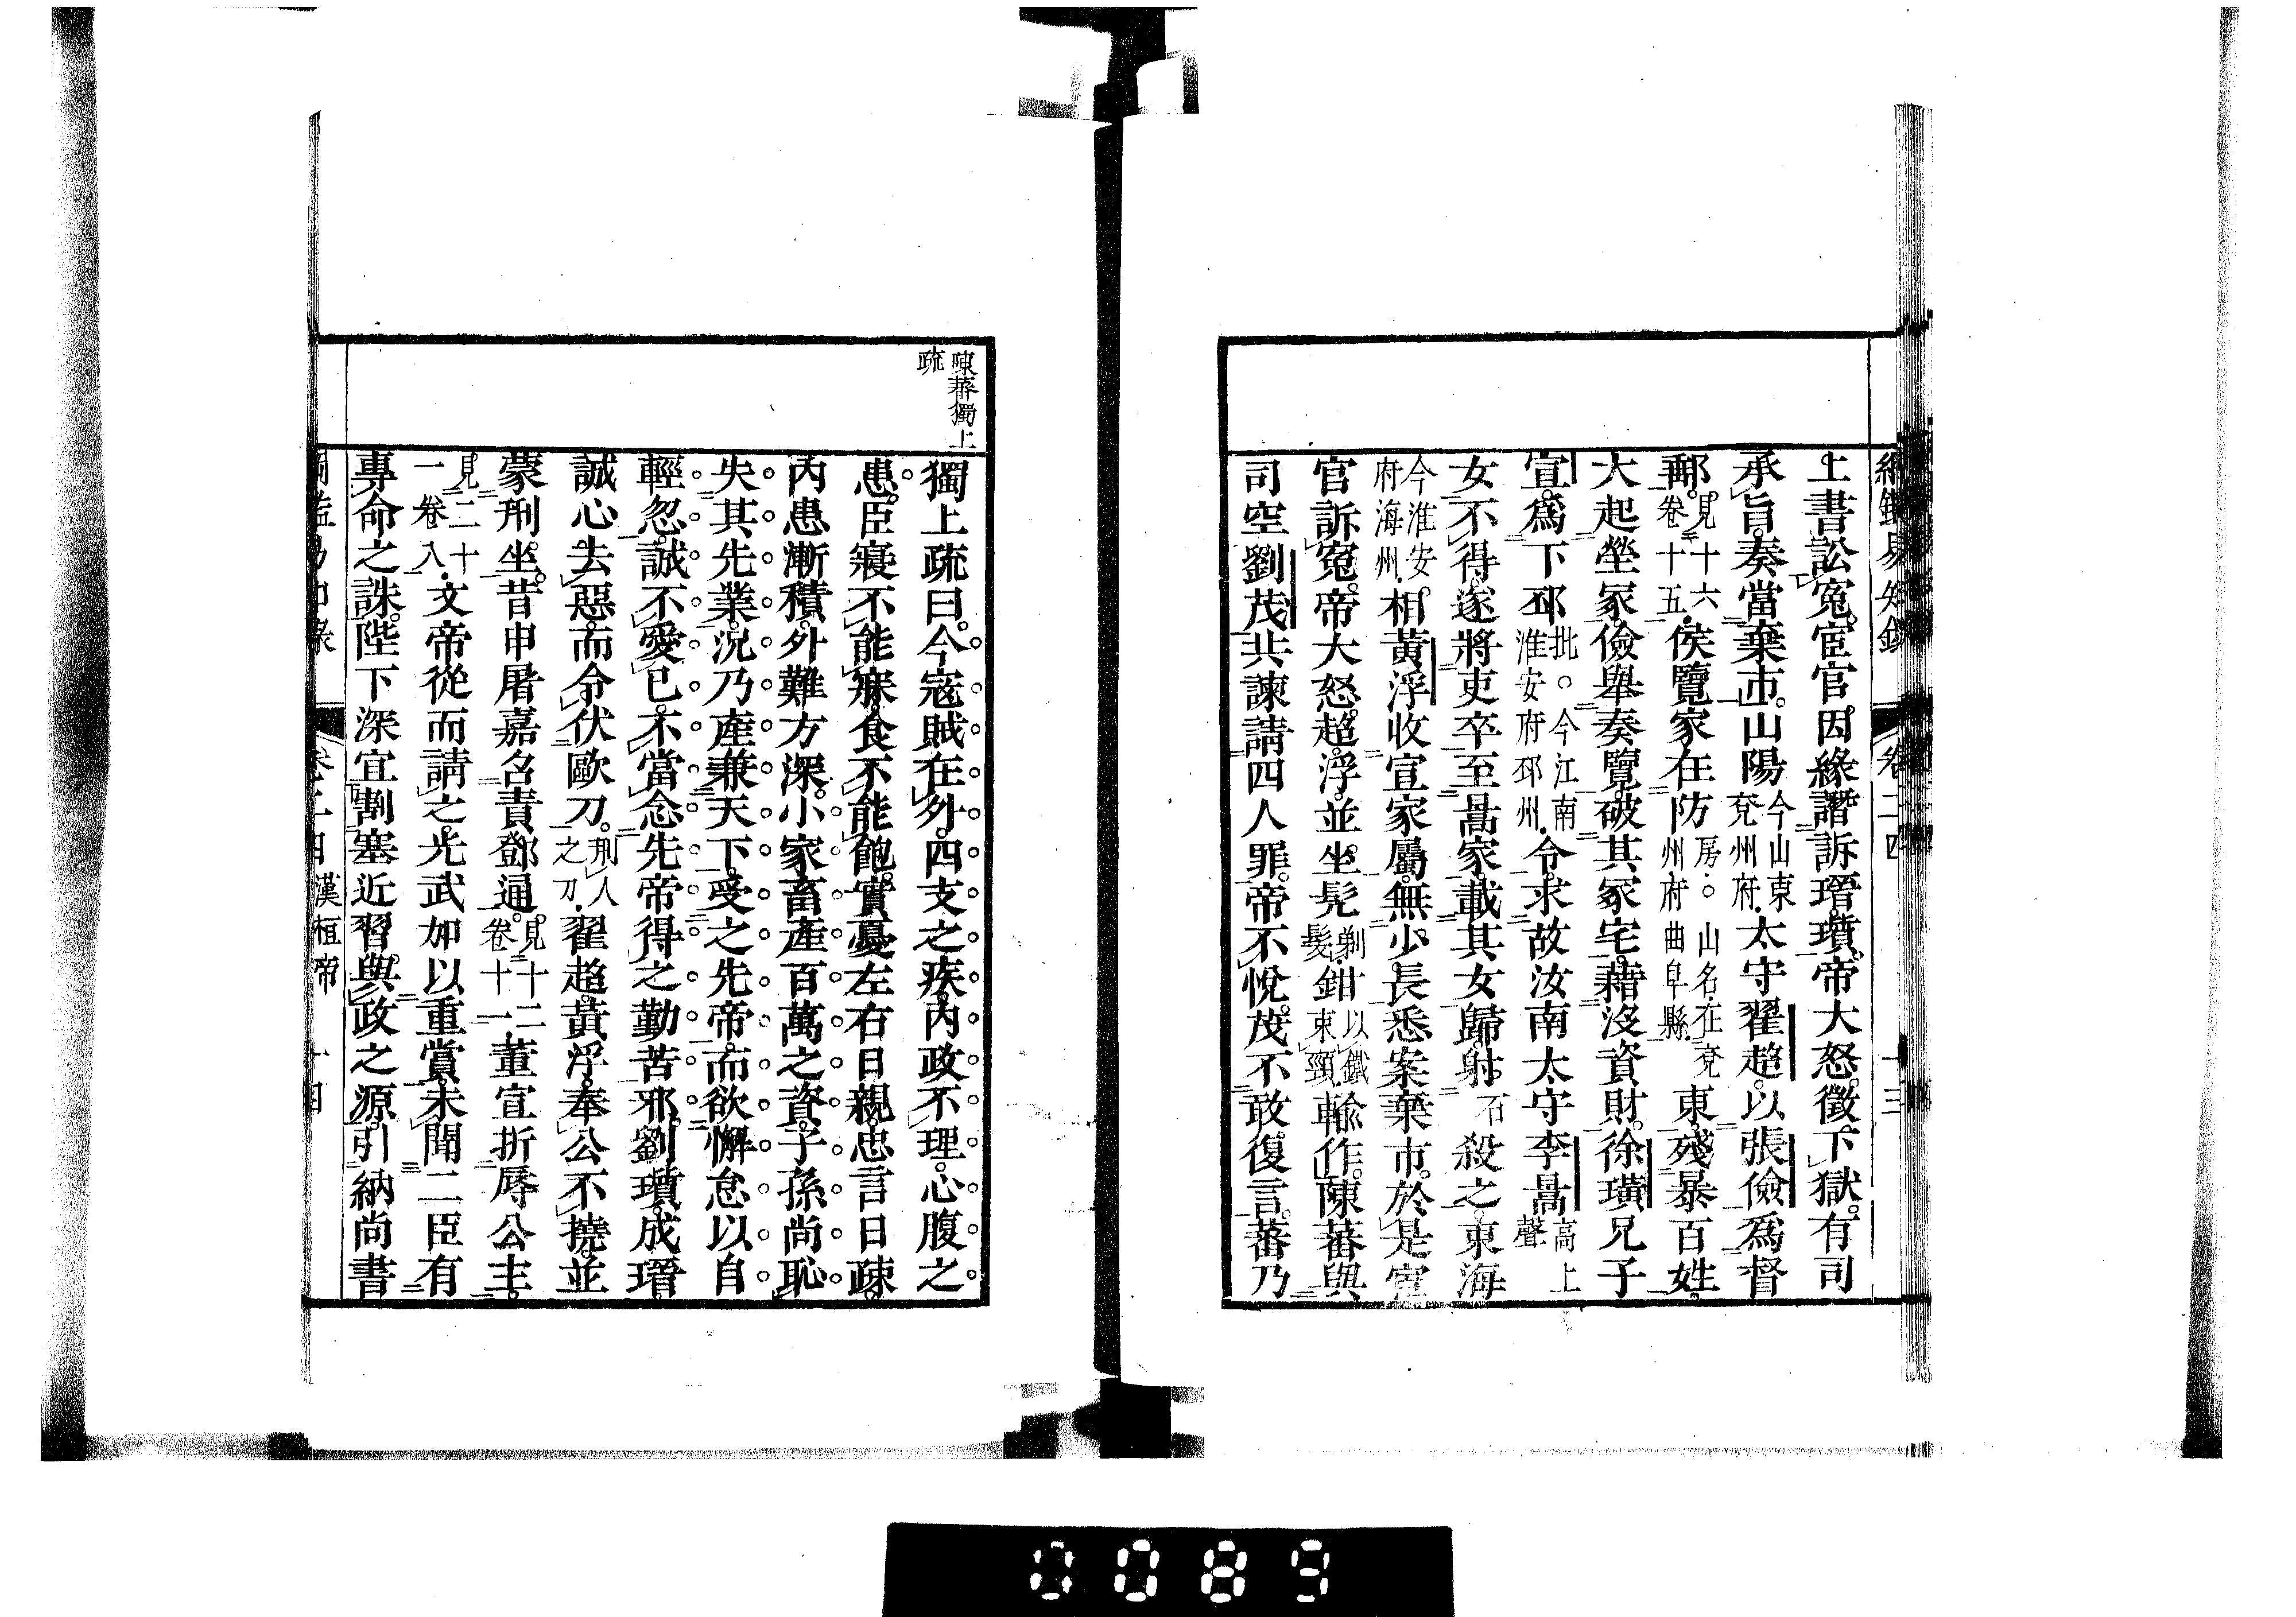 上書訟冤。宦官因緣譖訴瑨瓆。帝大怒。徵下獄。有司
承旨。奏當棄市。山陽今山東兗州府。太守翟超。以張儉爲督
郵。見十六卷十五。侯覽家在防房。○山名。在兗州府曲阜縣。東。殘暴百姓。
大起塋冢。儉舉奏覽。破其冢宅。藉沒資財。徐璜兄子
宣。爲下邳批。○今江南淮安府邳州。令。求故汝南太守李暠高上聲
女不得。遂將吏卒至暠家。載其女歸。射石殺之。東海
今淮安府海州。相黃浮收宣家屬。無少長悉案棄市。於是宦
官訴冤。帝大怒。超浮並坐髡剃髮。鉗以鐵束頸。輸作。陳蕃與
司空劉茂共諫請四人罪。帝不悅。茂不敢復言。蕃乃
卷二四
十三
陳蕃獨上
疏
獨上疏曰。今寇賊在外。四支之疾。內政不理。心腹之
患。臣寢不能寐。食不能飽。實憂左右日親。忠言日疎。
內患漸積。外難方深。小家畜產百萬之資。子孫尚恥
失其先業。況乃產兼天下。受之先帝。而欲懈怠以自
輕忽。誠不愛已。不當念先帝得之勤苦邪。劉瓆。成瑨
誠心去惡。而令伏歐刀。刑人之刀。翟超。黃浮。奉公不撓。並
蒙刑坐。昔申屠嘉召責鄧通。見十二卷十一董宣折辱公主。
見二十一卷八。文帝從而請之。光武加以重賞。未聞二臣有
專命之誅。陛下深宜割塞近習與政之源。引納尚書
漢桓帝